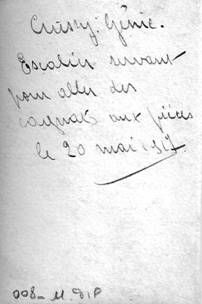 Crissy. Génie.
Escalier servant
pour aller des
cagnats aux pièces
le 20 mai 1917
008_ M. DIP